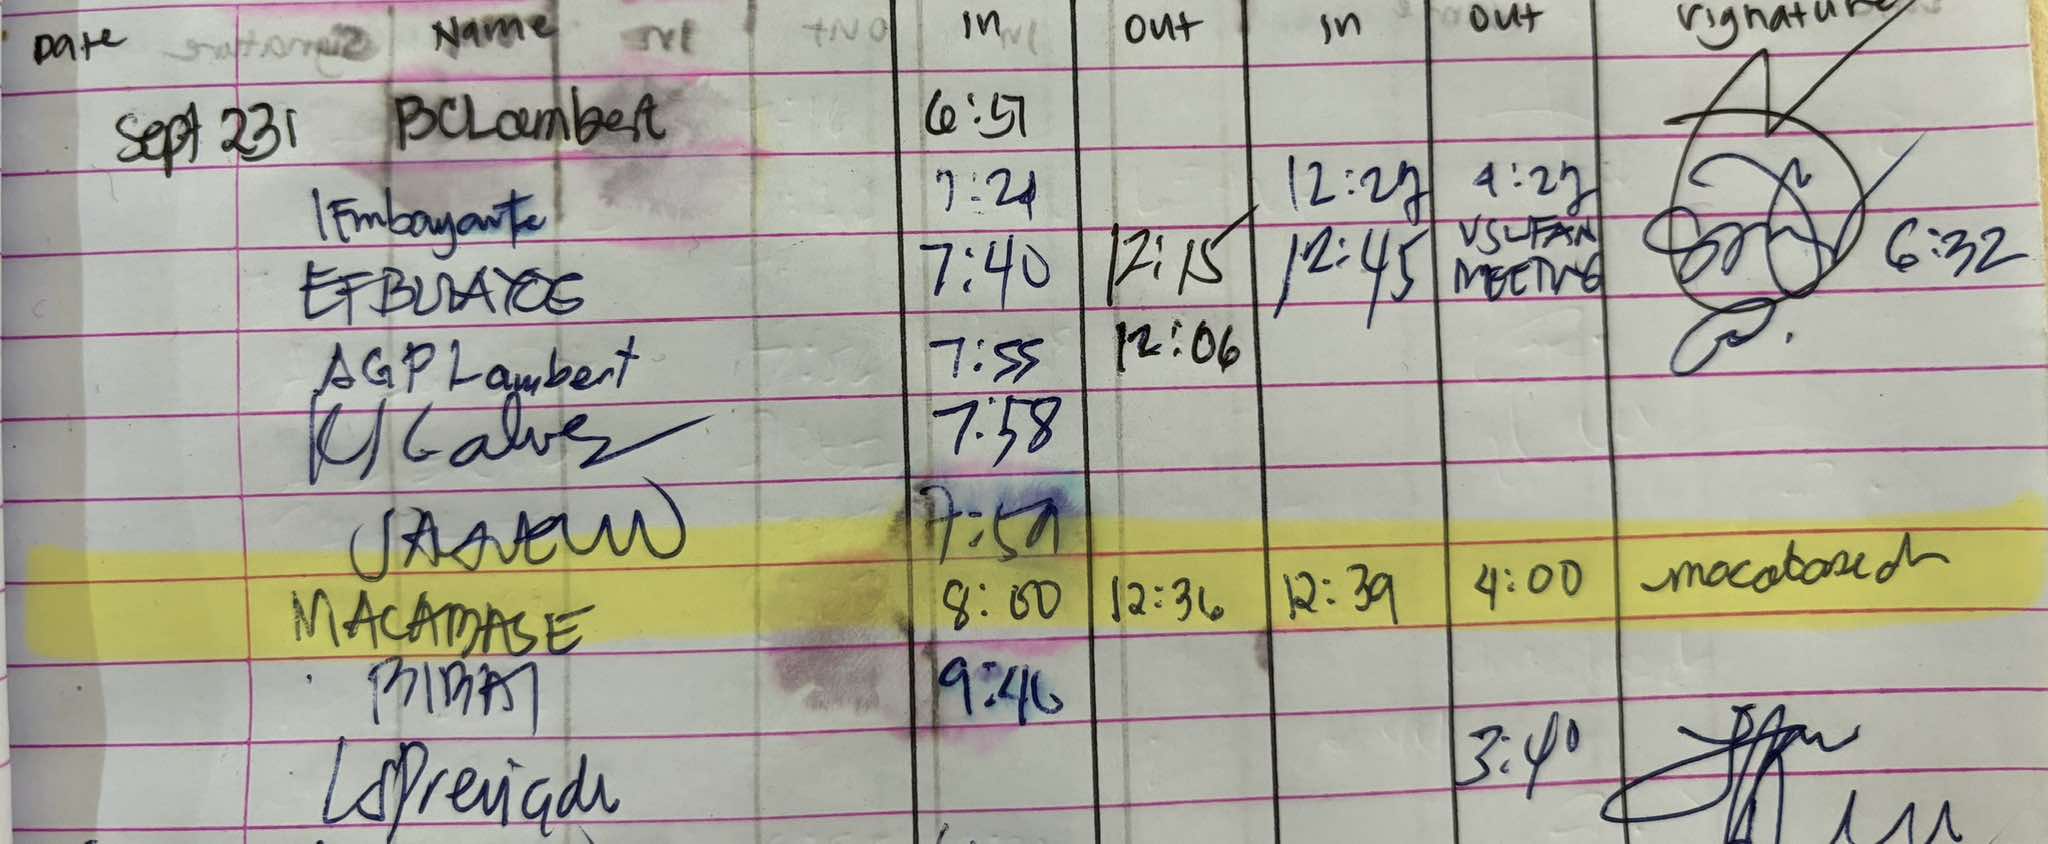 Date Name in out in out signature
Sept 23 BCLambert 6:57
IEmbayarte 7:21 12:27 4:27
EFBULAYOG 7:40 12:15 12:45 VSUFAN MEETING 6:32
AGPLambert 7:55 12:06
KJGalvez 7:58
7:59
MACABASE 8:00 12:36 12:39 4:00 macabased
9:46
3:40